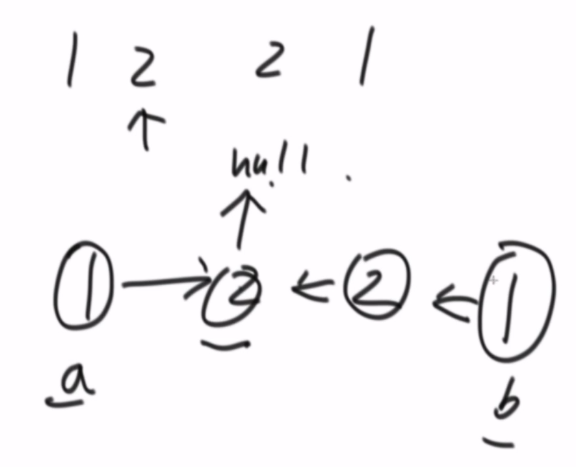 1 2 2 1
null
1 2 2 1
a b